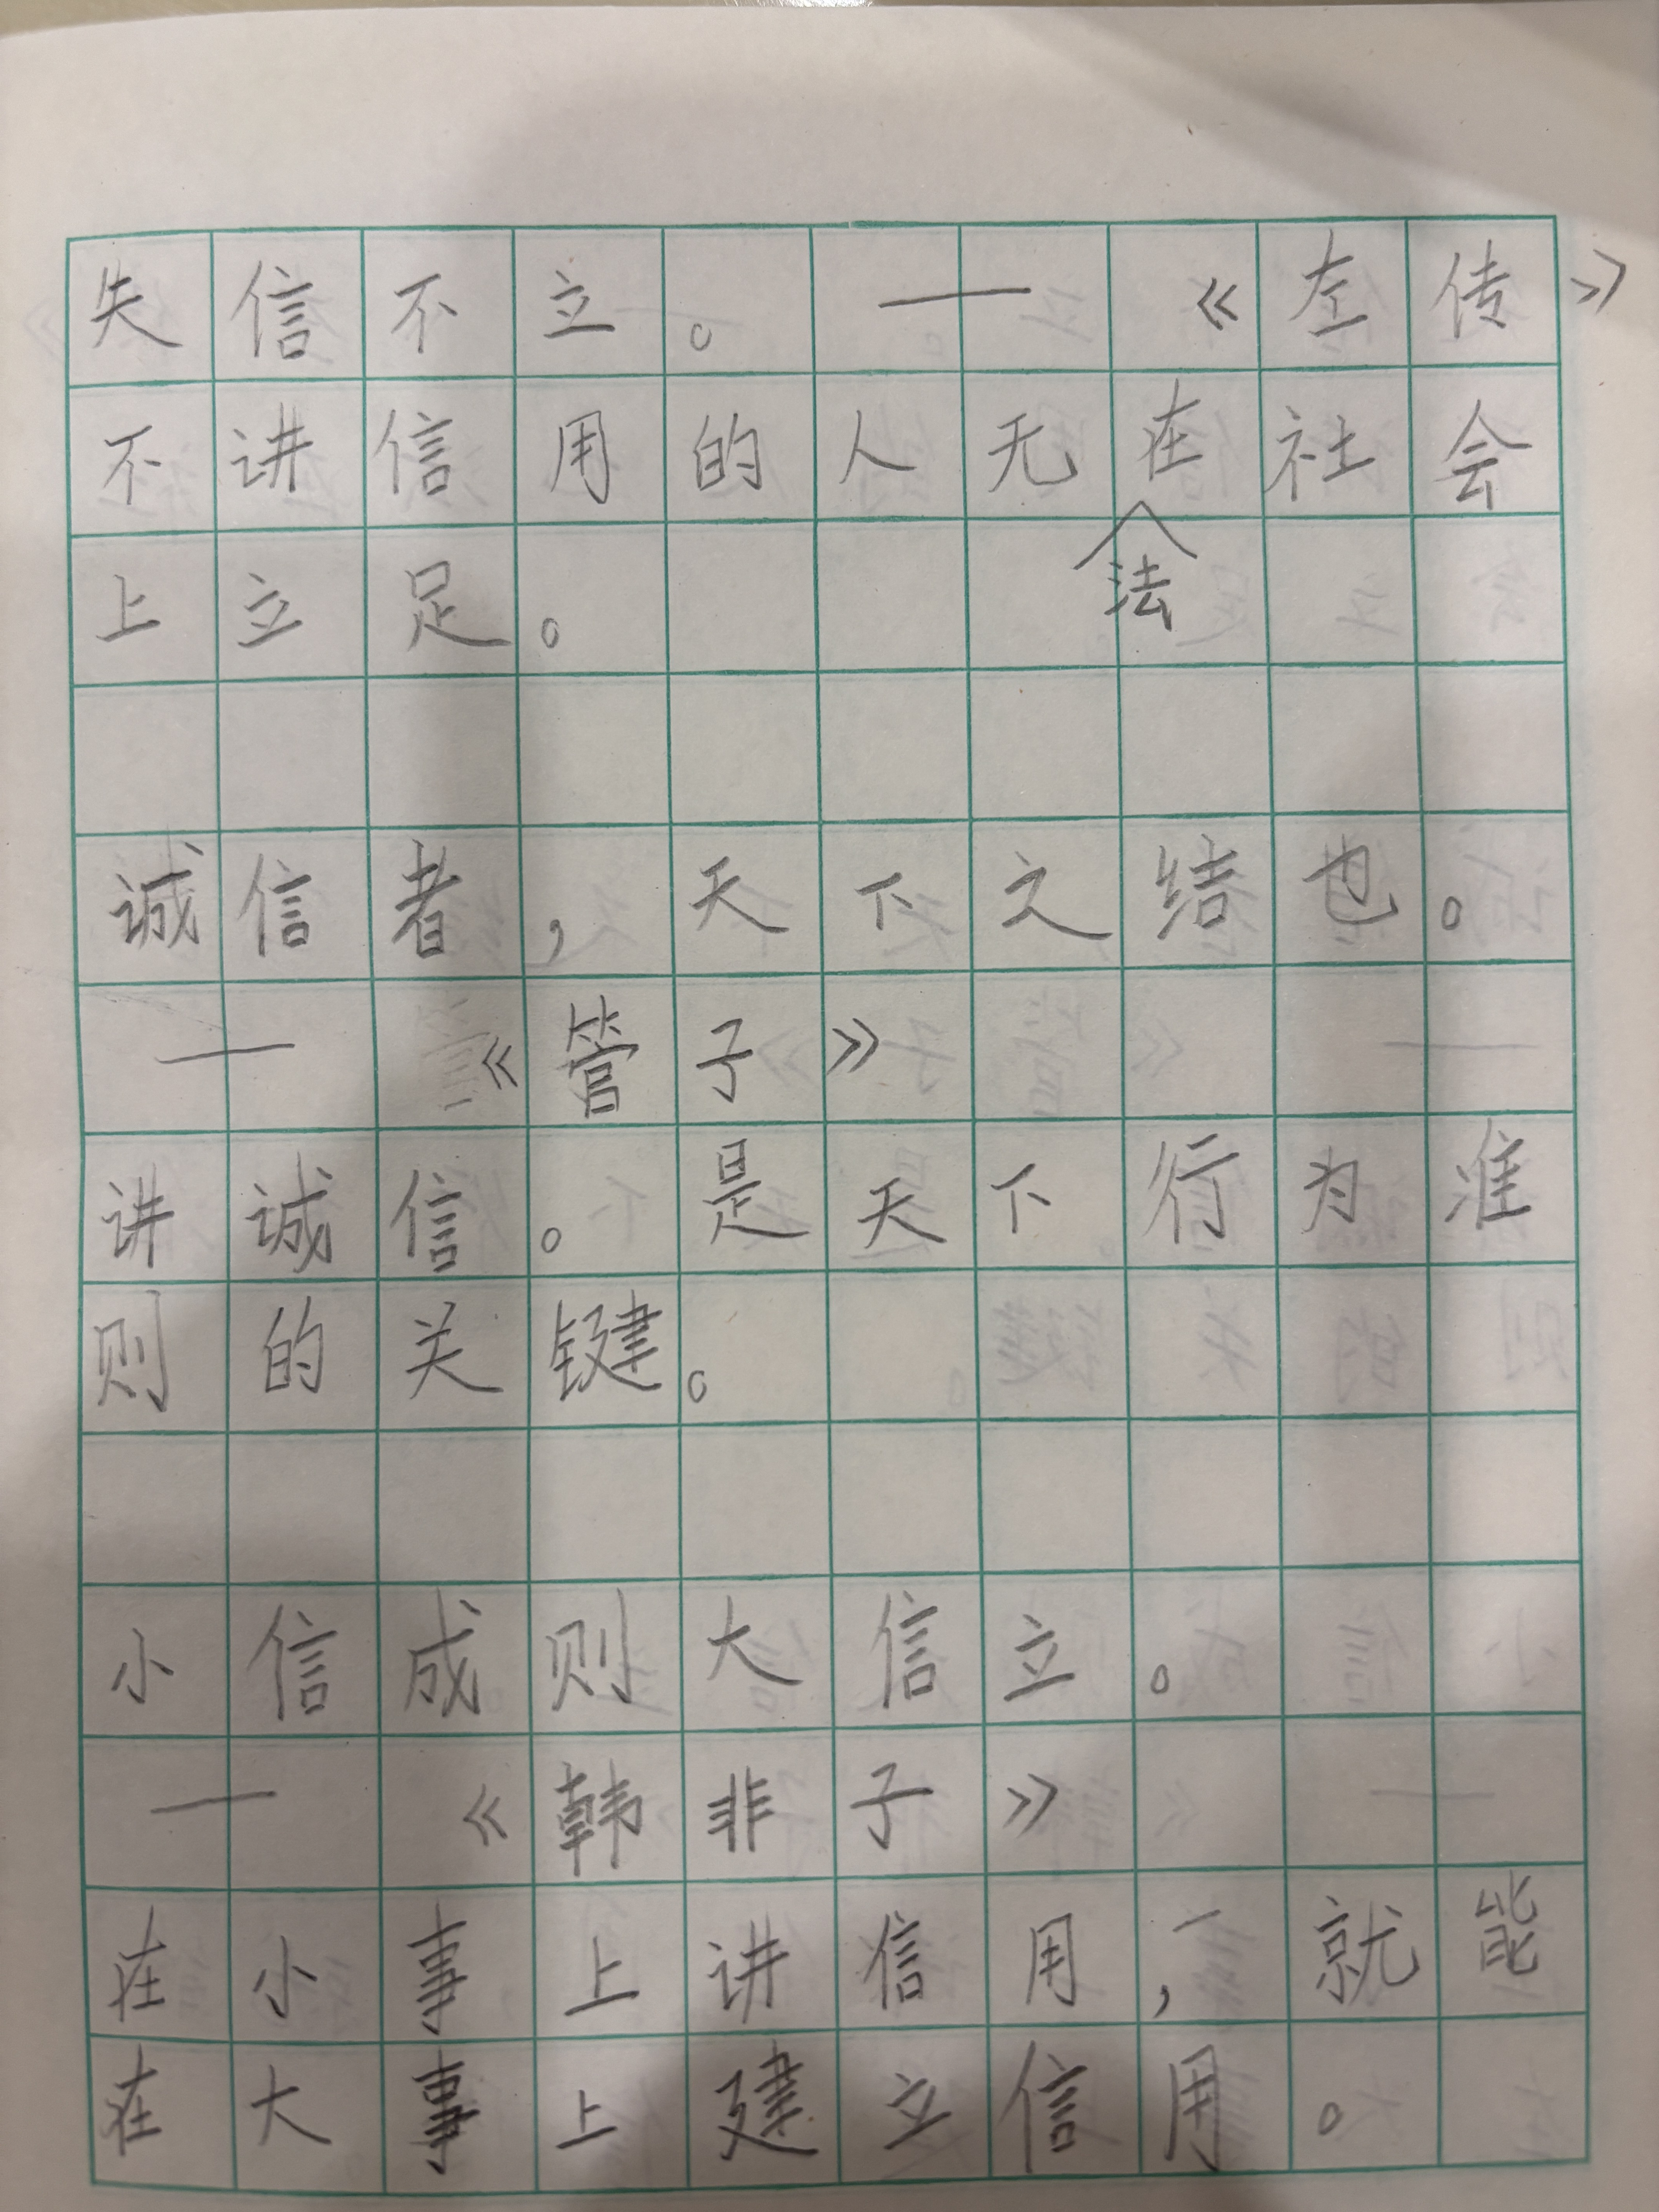 失信不立。——《左传》
不讲信用的人无法在社会
上立足。
诚信者，天下之结也。
——《管子》
讲诚信。是天下行为准
则的关键。
小信成则大信立。
——《韩非子》
在小事上讲信用，就能
在大事上建立信用。